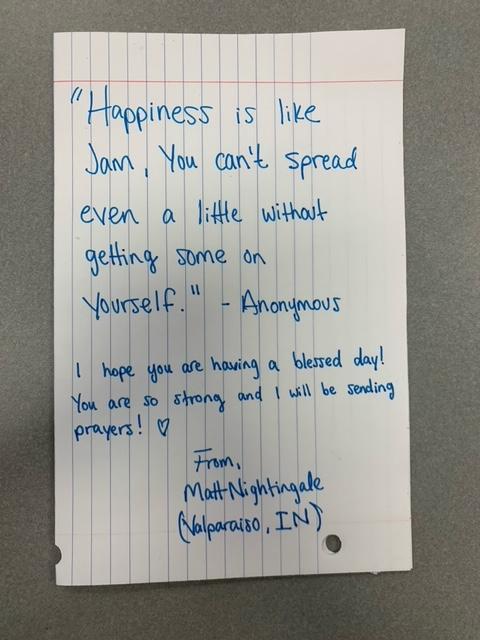 "Happiness is like
Jam, You can't spread
even a little without
getting some on
Yourself." - Anonymous
I hope you are having a blessed day!
You are so strong and I will be sending
prayers! ♡
From,
Matt Nightingale
(Valparaiso, IN)